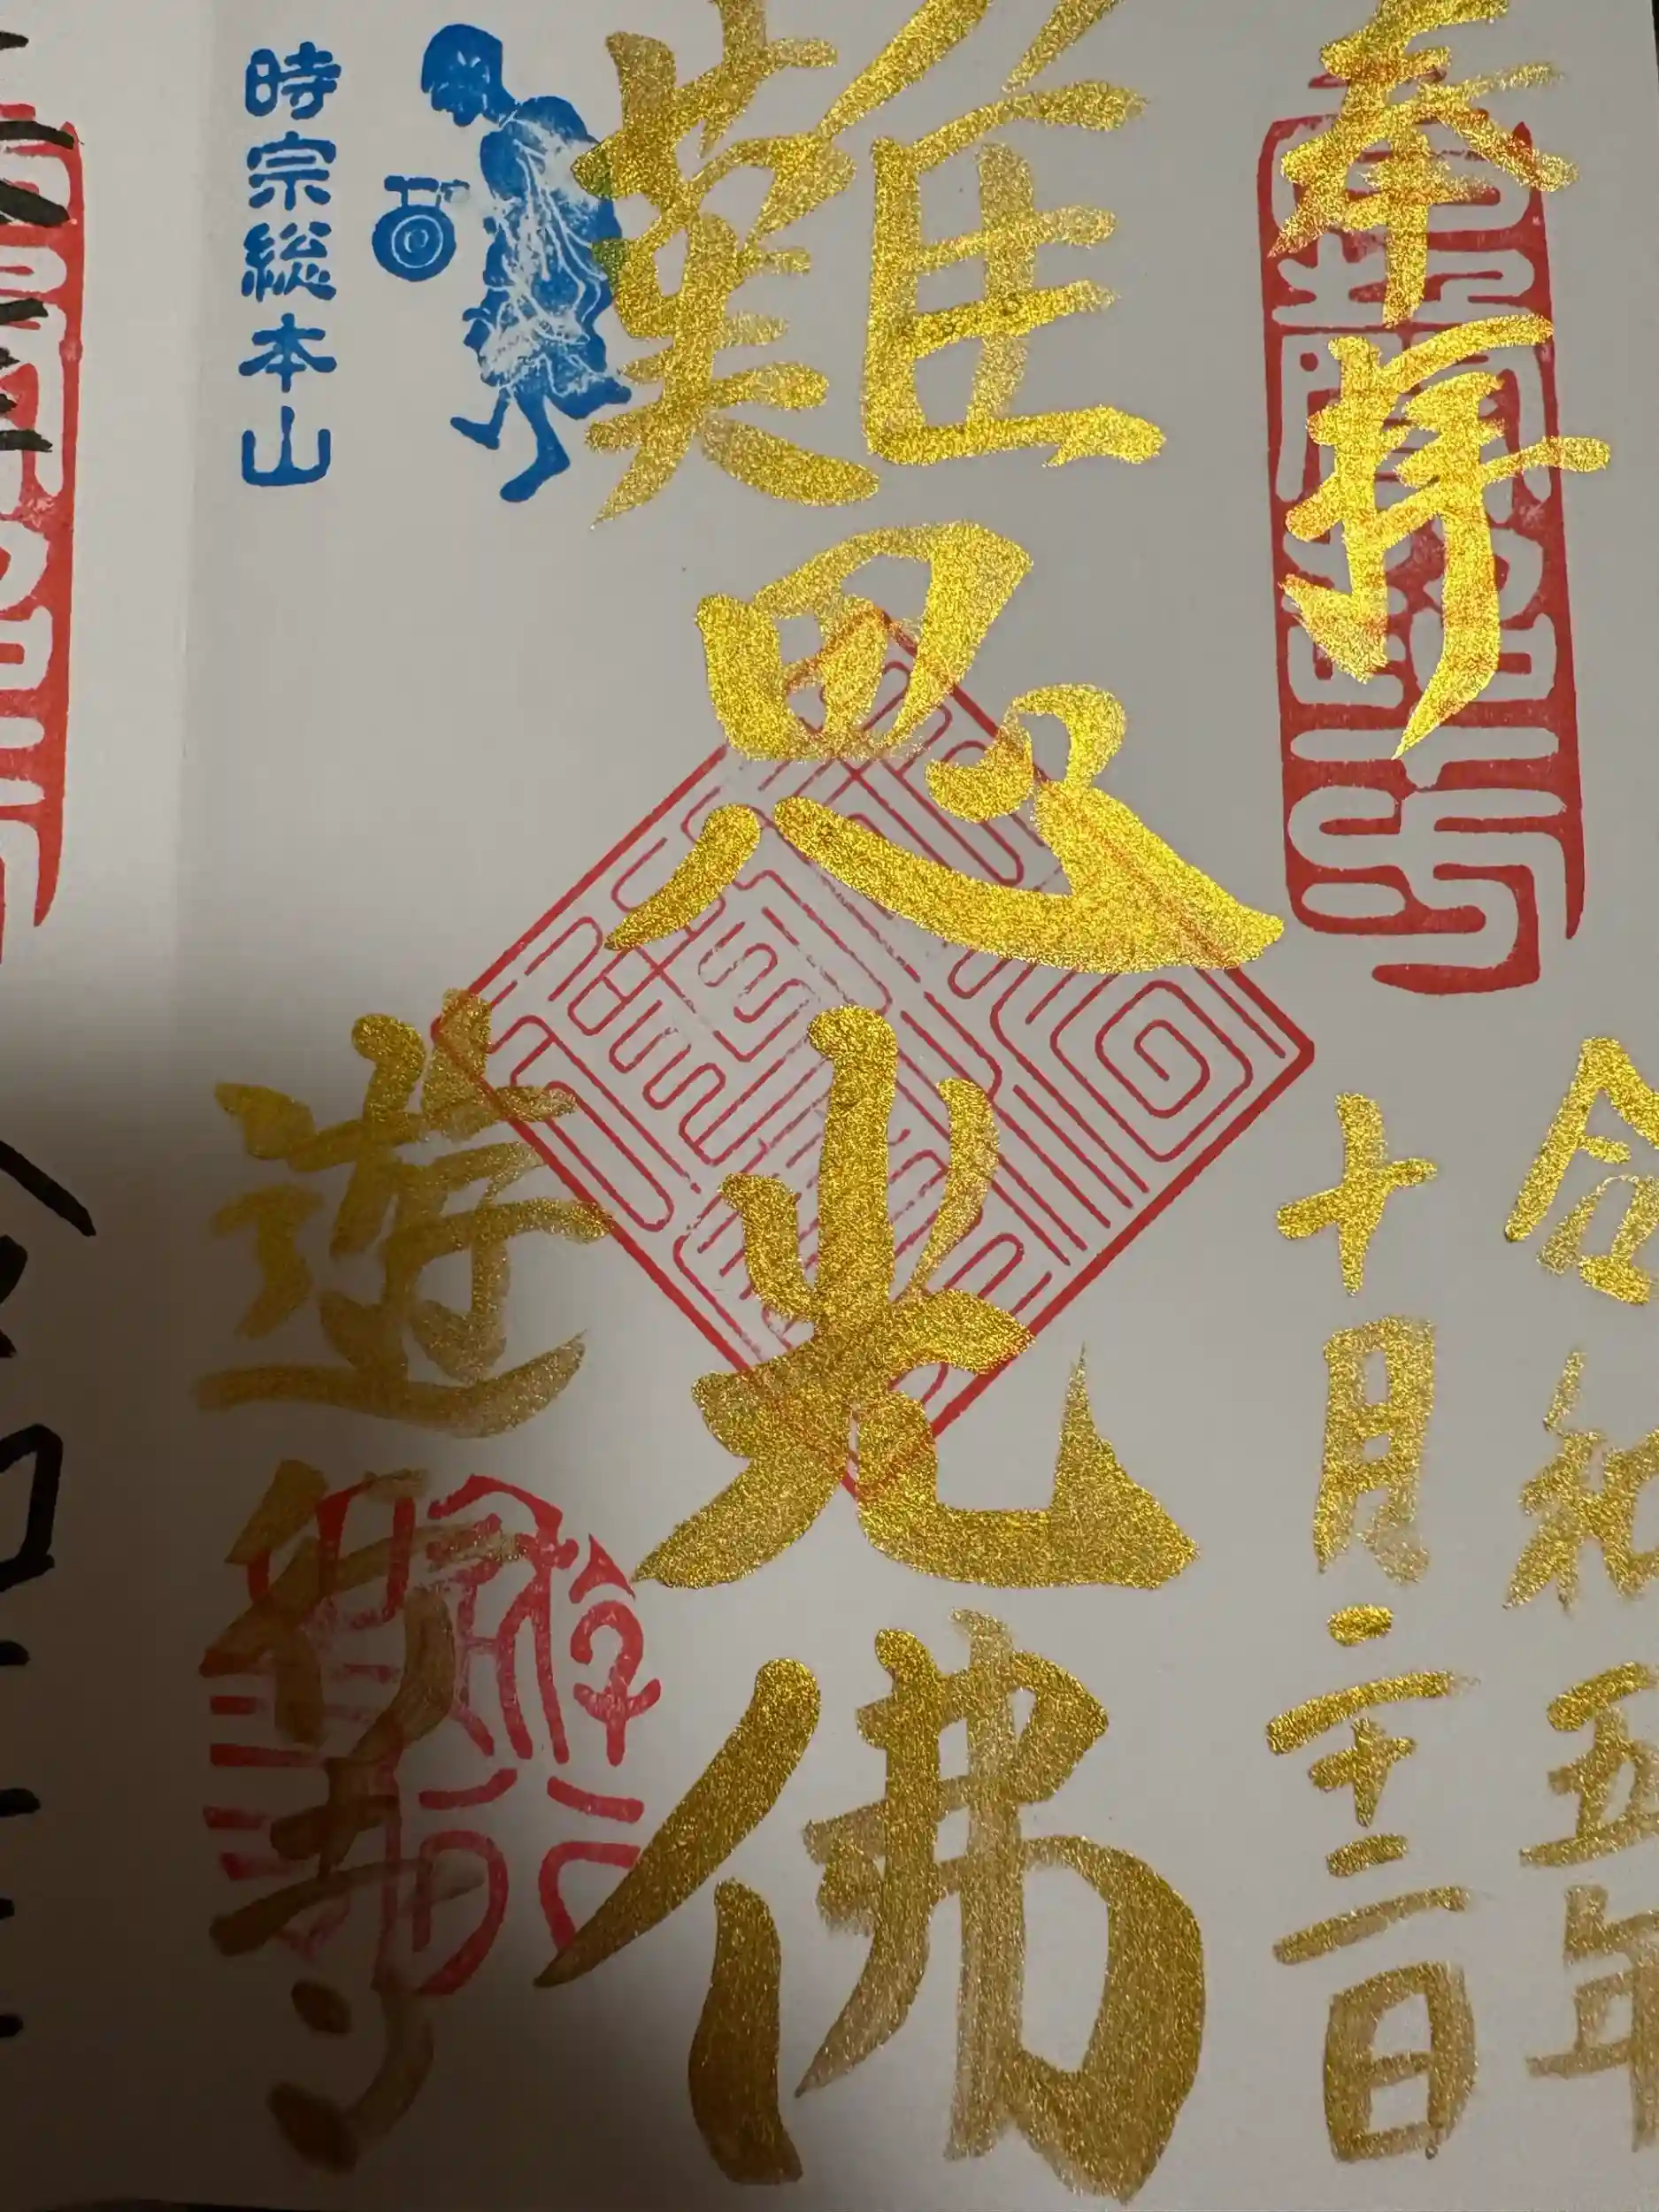 奉拝
令和五年
十月二十二日
難思光佛
時宗総本山
遊行寺